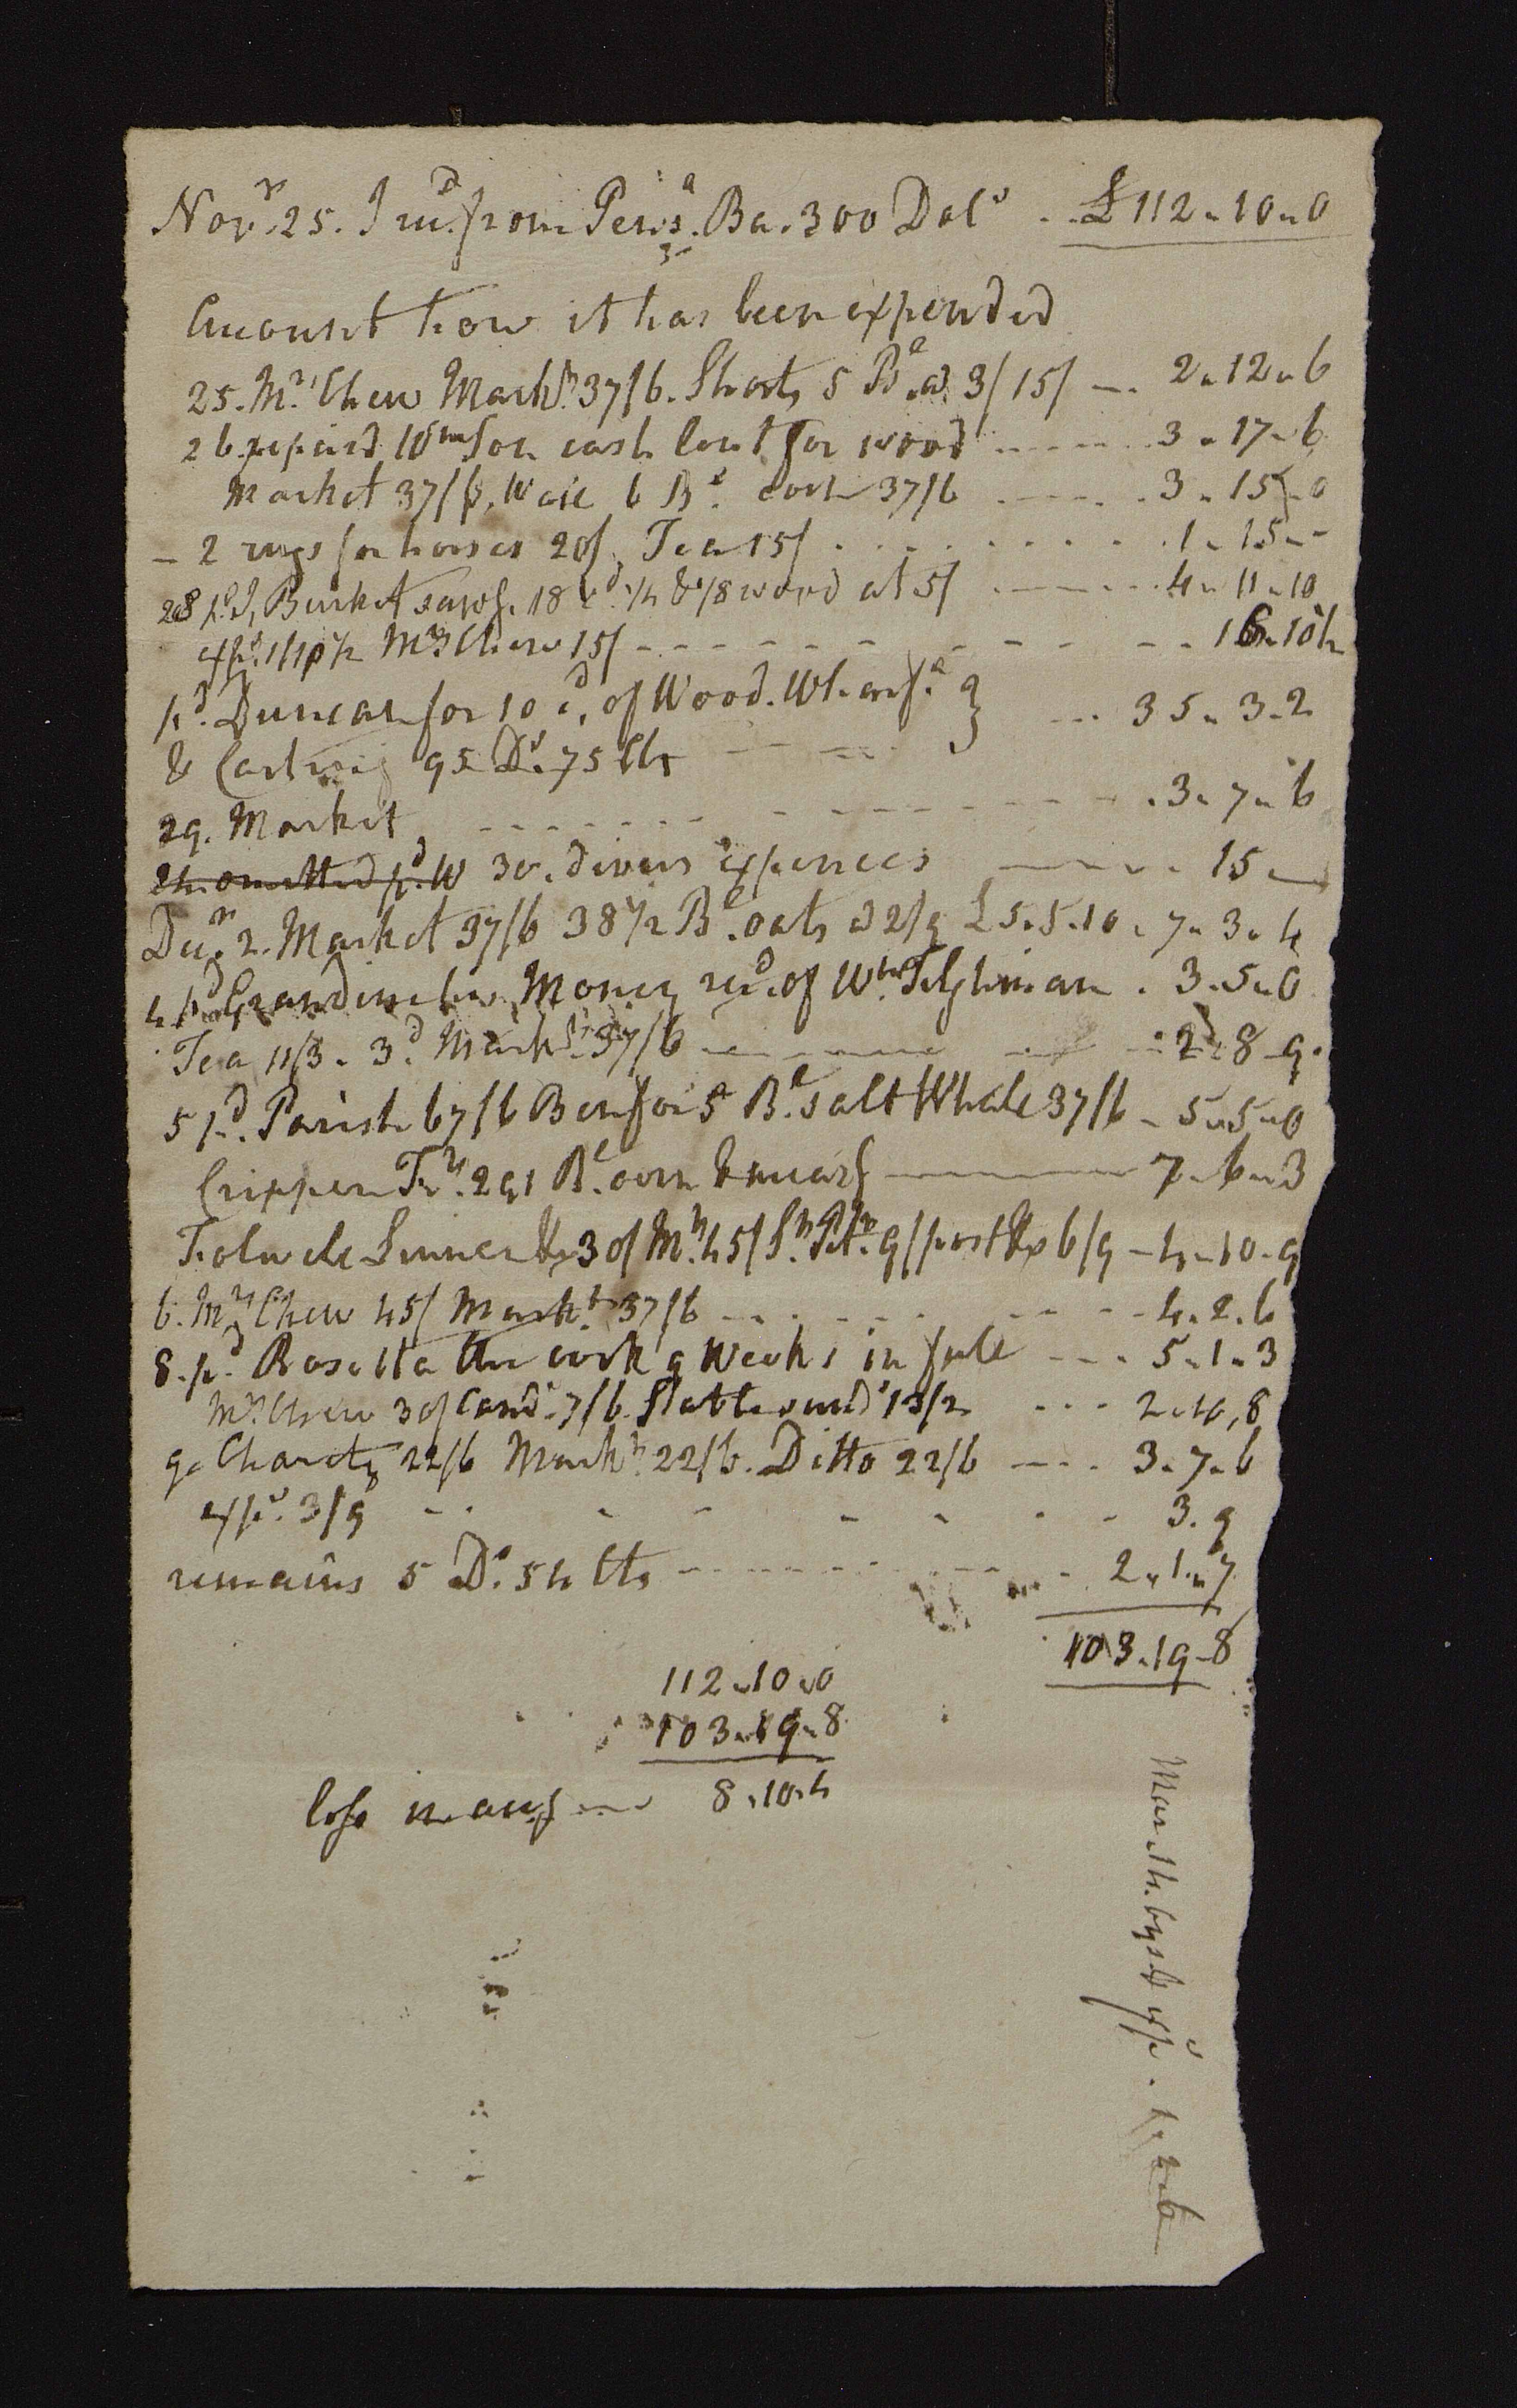 Novr. 25. I recd. from Pensa. Ba. 300 Dols .. £112"10"0
Account how it has been expended
25. Mrs Chew Markt. 37/6. Shorts 5 Bl. a 3/ 15/ — 2"12"6
26 repaid Wm for cash lent for wood ..... 3"17"6
Market 37/6. 6 Bl. 37/6 ..... 3"15"0
– 2 rugs for horses 20/, Tea 15/ ........ 1"15"-
28 pd. Burket sawg. 18 cd. 1/4 & 1/8 wood at 5/ ..... 4"11"10
exps. 1/10 1/2 Mrs. Chew 15/ - - - - - - 16"10 1/2
pd. Duncan for 10 cd. of Wood. Wharfa.
& Carting 95 Ds. 75 Cts } ... 35"3"2
29. Market - - - - - - - - 3"7"6
omitted pd. W 30. divers expences ---- 15"—
Decr. 2. Market 37/6 38 1/2 Bl. oats a 2/9 £5.5.10 . 7"3"4
4. pd. Grandime his Money recd. of Wm. Tilghman . 3"5"0
Tea 11/3. 3d. Markt. 37/6 ----- 2"8"9
5 pd. Parish 67/6 Ben for 5 Bl. salt 37/6 - 5"5"0
Crippen Fr. 291 Bl. corn ---- 7"6"3
3 of 45/ 9/ post 6/9 - 4"10"9
6. Mrs Chew 45/ Markt. 37/6 - - - - - 4"2"6
8. pd. Rosetta the cook 9 Weeks in full --- 5"1"3
Mrs. Chew 30/ Cand. 7/6. 13/2 --- 2"10,8
9. Charity 22/6 Markt. 22/6. Ditto 22/6 ---- 3"7"6
exps. 3/9 - - - - - - - 3.9
remains 5 Ds. 54 Cts --------- 2"1"7
103"19"8
112"10"0
103"19"8
loss 8"10"4
Mar. 14. exps. 2"6